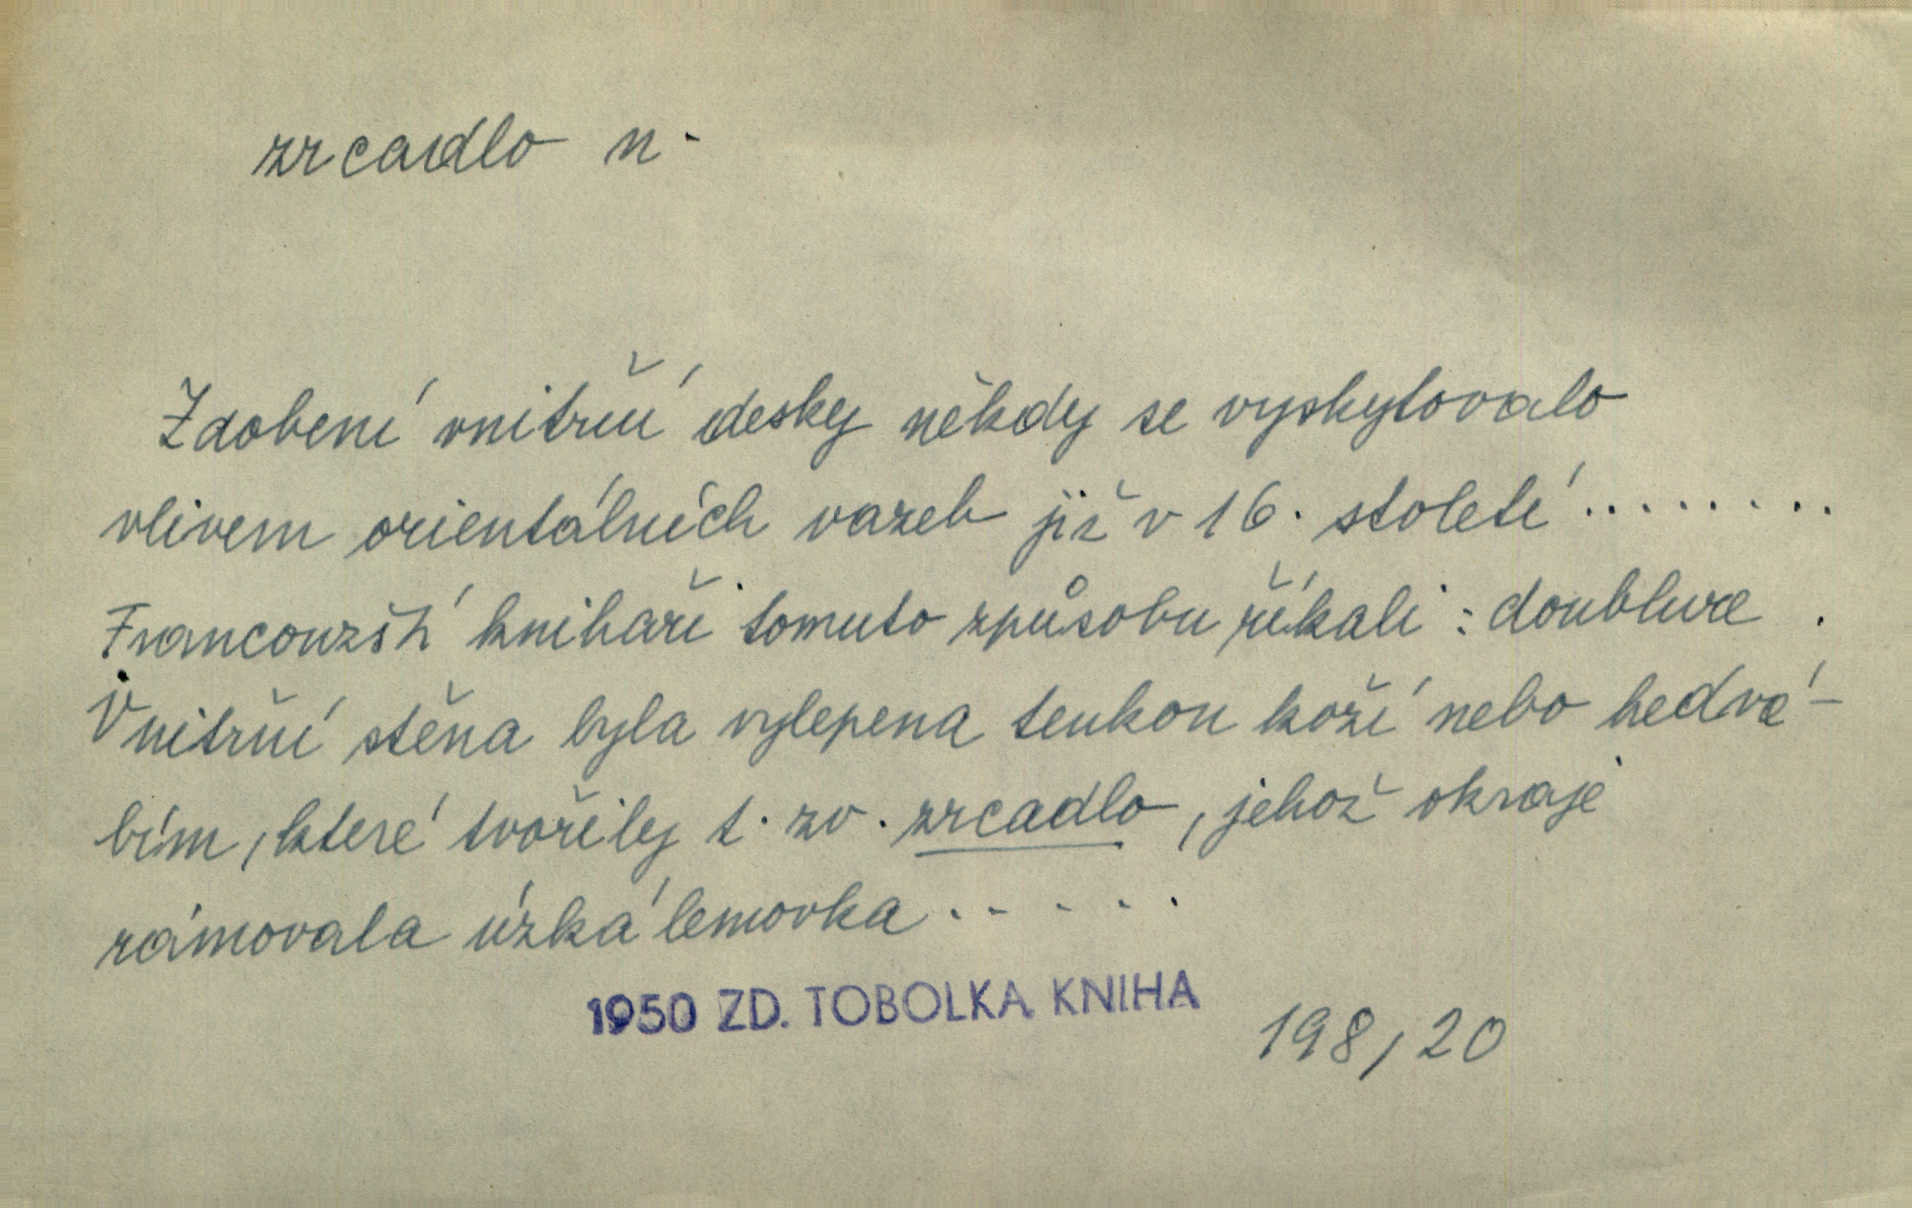 zrcadlo n.
Zdobení vnitřní desky někdy se vyskytovalo
vlivem orientálních vazeb již v 16. století.........
Francouzští knihaři tomuto způsobu říkali: doublure.
Vnitřní stěna byla vylepena tenkou koží nebo hedvá-
bím, které tvořily t. zv. zrcadlo, jehož okraje
rámovala úzká lemovka.....
1950 ZD. TOBOLKA KNIHA
198, 20